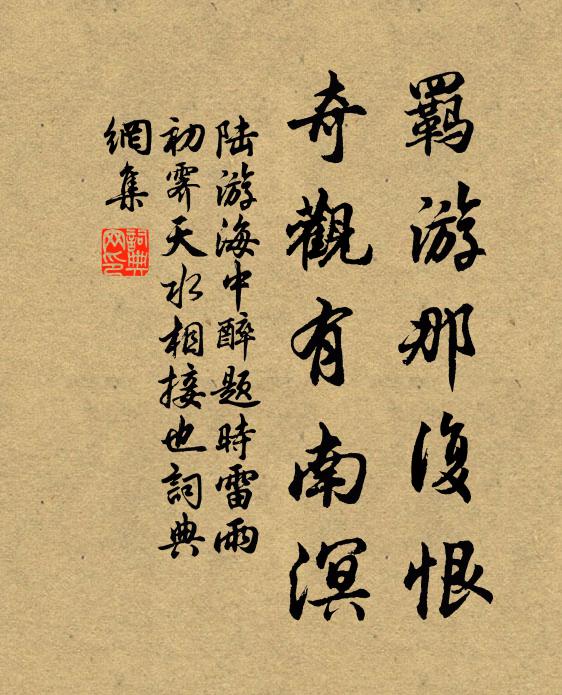 羈游那復恨
奇觀有南溟
陆游海中醉題時雷雨
初霽天水相接也詞典
網集
詞典網印